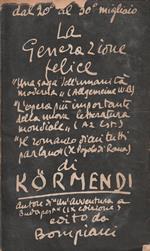 dal 20° al 30° migliaio
La
Generazione
felice
"Una saga dell'umanità
moderna" (Allgemeine W.Z.)
"L'opera più importante
della nuova letteratura
mondiale" (Az Est)
"Il romando di cui tutti
parlano" (Il Popolo di Roma)
di
KÖRMENDI
autore di "Un'Avventura a
Budapest" (12ª edizione)
edito da
Bompiani